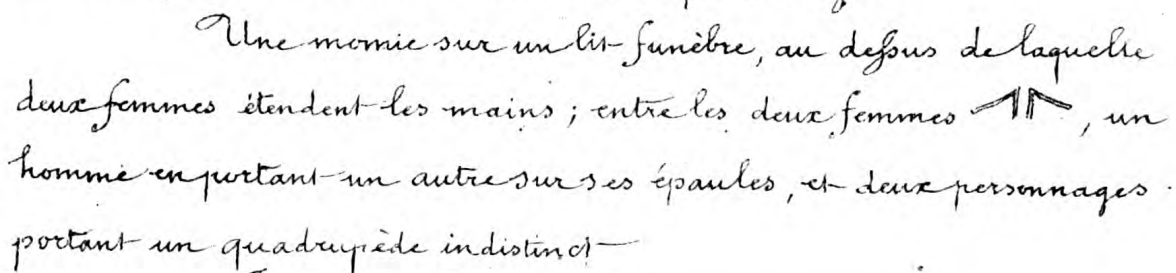 Une momie sur un lit funèbre, au dessus de laquelle
deux femmes étendent les mains ; entre les deux femmes , un
homme en portant un autre sur ses épaules, et deux personnages
portant un quadrupède indistinct